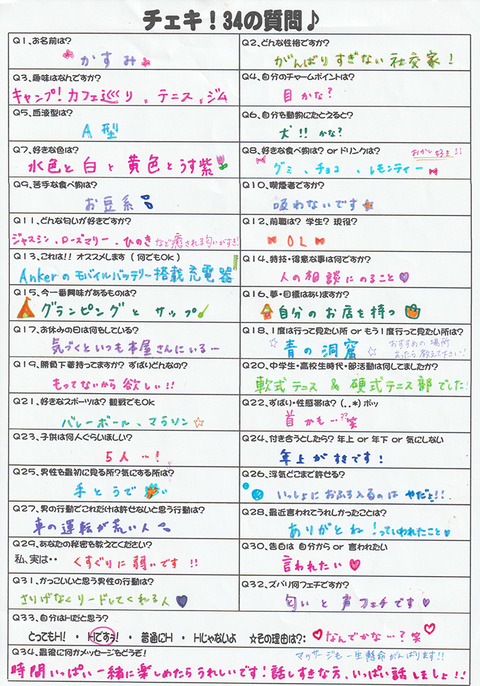 チェキ！34の質問♪
Q1、お名前は？
かすみ
Q2、どんな性格ですか？
がんばりすぎない社交家！
Q3、趣味はなんですか？
キャンプ！カフェ巡り、テニス、ジム
Q4、自分のチャームポイントは？
目かな？
Q5、血液型は？
A型
Q6、自分を動物にたとえると？
犬!! かな？
Q7、好きな色は？
水色と白と黄色とうす紫
Q8、好きな食べ物は？ or ドリンクは？
おかし好き!!
グミ、チョコ、レモンティー
Q9、苦手な食べ物は？
お豆系
Q10、喫煙者ですか？
吸わないです
Q11、どんな匂いが好きですか？
ジャスミン、ローズマリー、ひのきなど癒される匂いがすき！
Q12、前職は？ 学生？ 現役？
OL
Q13、これは!! オススメします（何でもOk）
Ankerのモバイルバッテリー搭載充電器
Q14、特技・得意な事は何ですか？
人の相談にのること♥
Q15、今一番興味があるものは？
グランピングとサップ
Q16、夢・目標はありますか？
自分のお店を持つ
Q17、お休みの日は何をしている？
気づくといつも本屋さんにいる…
Q18、1度は行って見たい所 or もう1度行って見たい所は？
☆青の洞窟☆
おすすめの場所
あったら教えてください！
Q19、勝負下着持ってますか？ ずばりどんなの？
もってないから欲しい!!
Q20、中学生・高校生時代・部活動は何してましたか？
軟式テニス & 硬式テニス部でした！
Q21、好きなスポーツは？ 観戦でもOK
バレーボール、マラソン☆
Q22、ずばり・性感帯は？（．．*）ポッ
首かも…?? 笑
Q23、子供は何人ぐらいほしい？
5人…！
Q24、付き合うとしたら？ 年上 or 年下 or 気にしない
年上がすきです！
Q25、男性を最初に見る所？気にする所は？
手とうで
Q26、浮気どこまで許せる？
いっしょにおふろ入るのはやだょ!!
Q27、男の行動でこれだけは許せないと思う行動は？
車の運転が荒い人
Q28、最近言われてうれしかったことは？
ありがとね！っていわれたこと♥
Q29、あなたの秘密を教えてください？
私、実は・・くすぐりに弱いです!!
Q30、告白は 自分から or 言われたい
言われたい♡
Q31、かっこいいと思う男性の行動は？
さりげなくリードしてくれる人♥
Q32、ズバリ何フェチですか？
匂いと声フェチです♥
Q33、自分はHだと思う？
とってもH！ ・ Hですょ！ ・ 普通にH ・ Hじゃないよ ☆その理由は？：♡なんでかな…？笑♡
Q34、最後に何かメッセージをどうぞ！
マッサージも一生懸命がんばります!!
時間いっぱい一緒に楽しめたらうれしいです！話しすきな方、いっぱい話しましょ!!